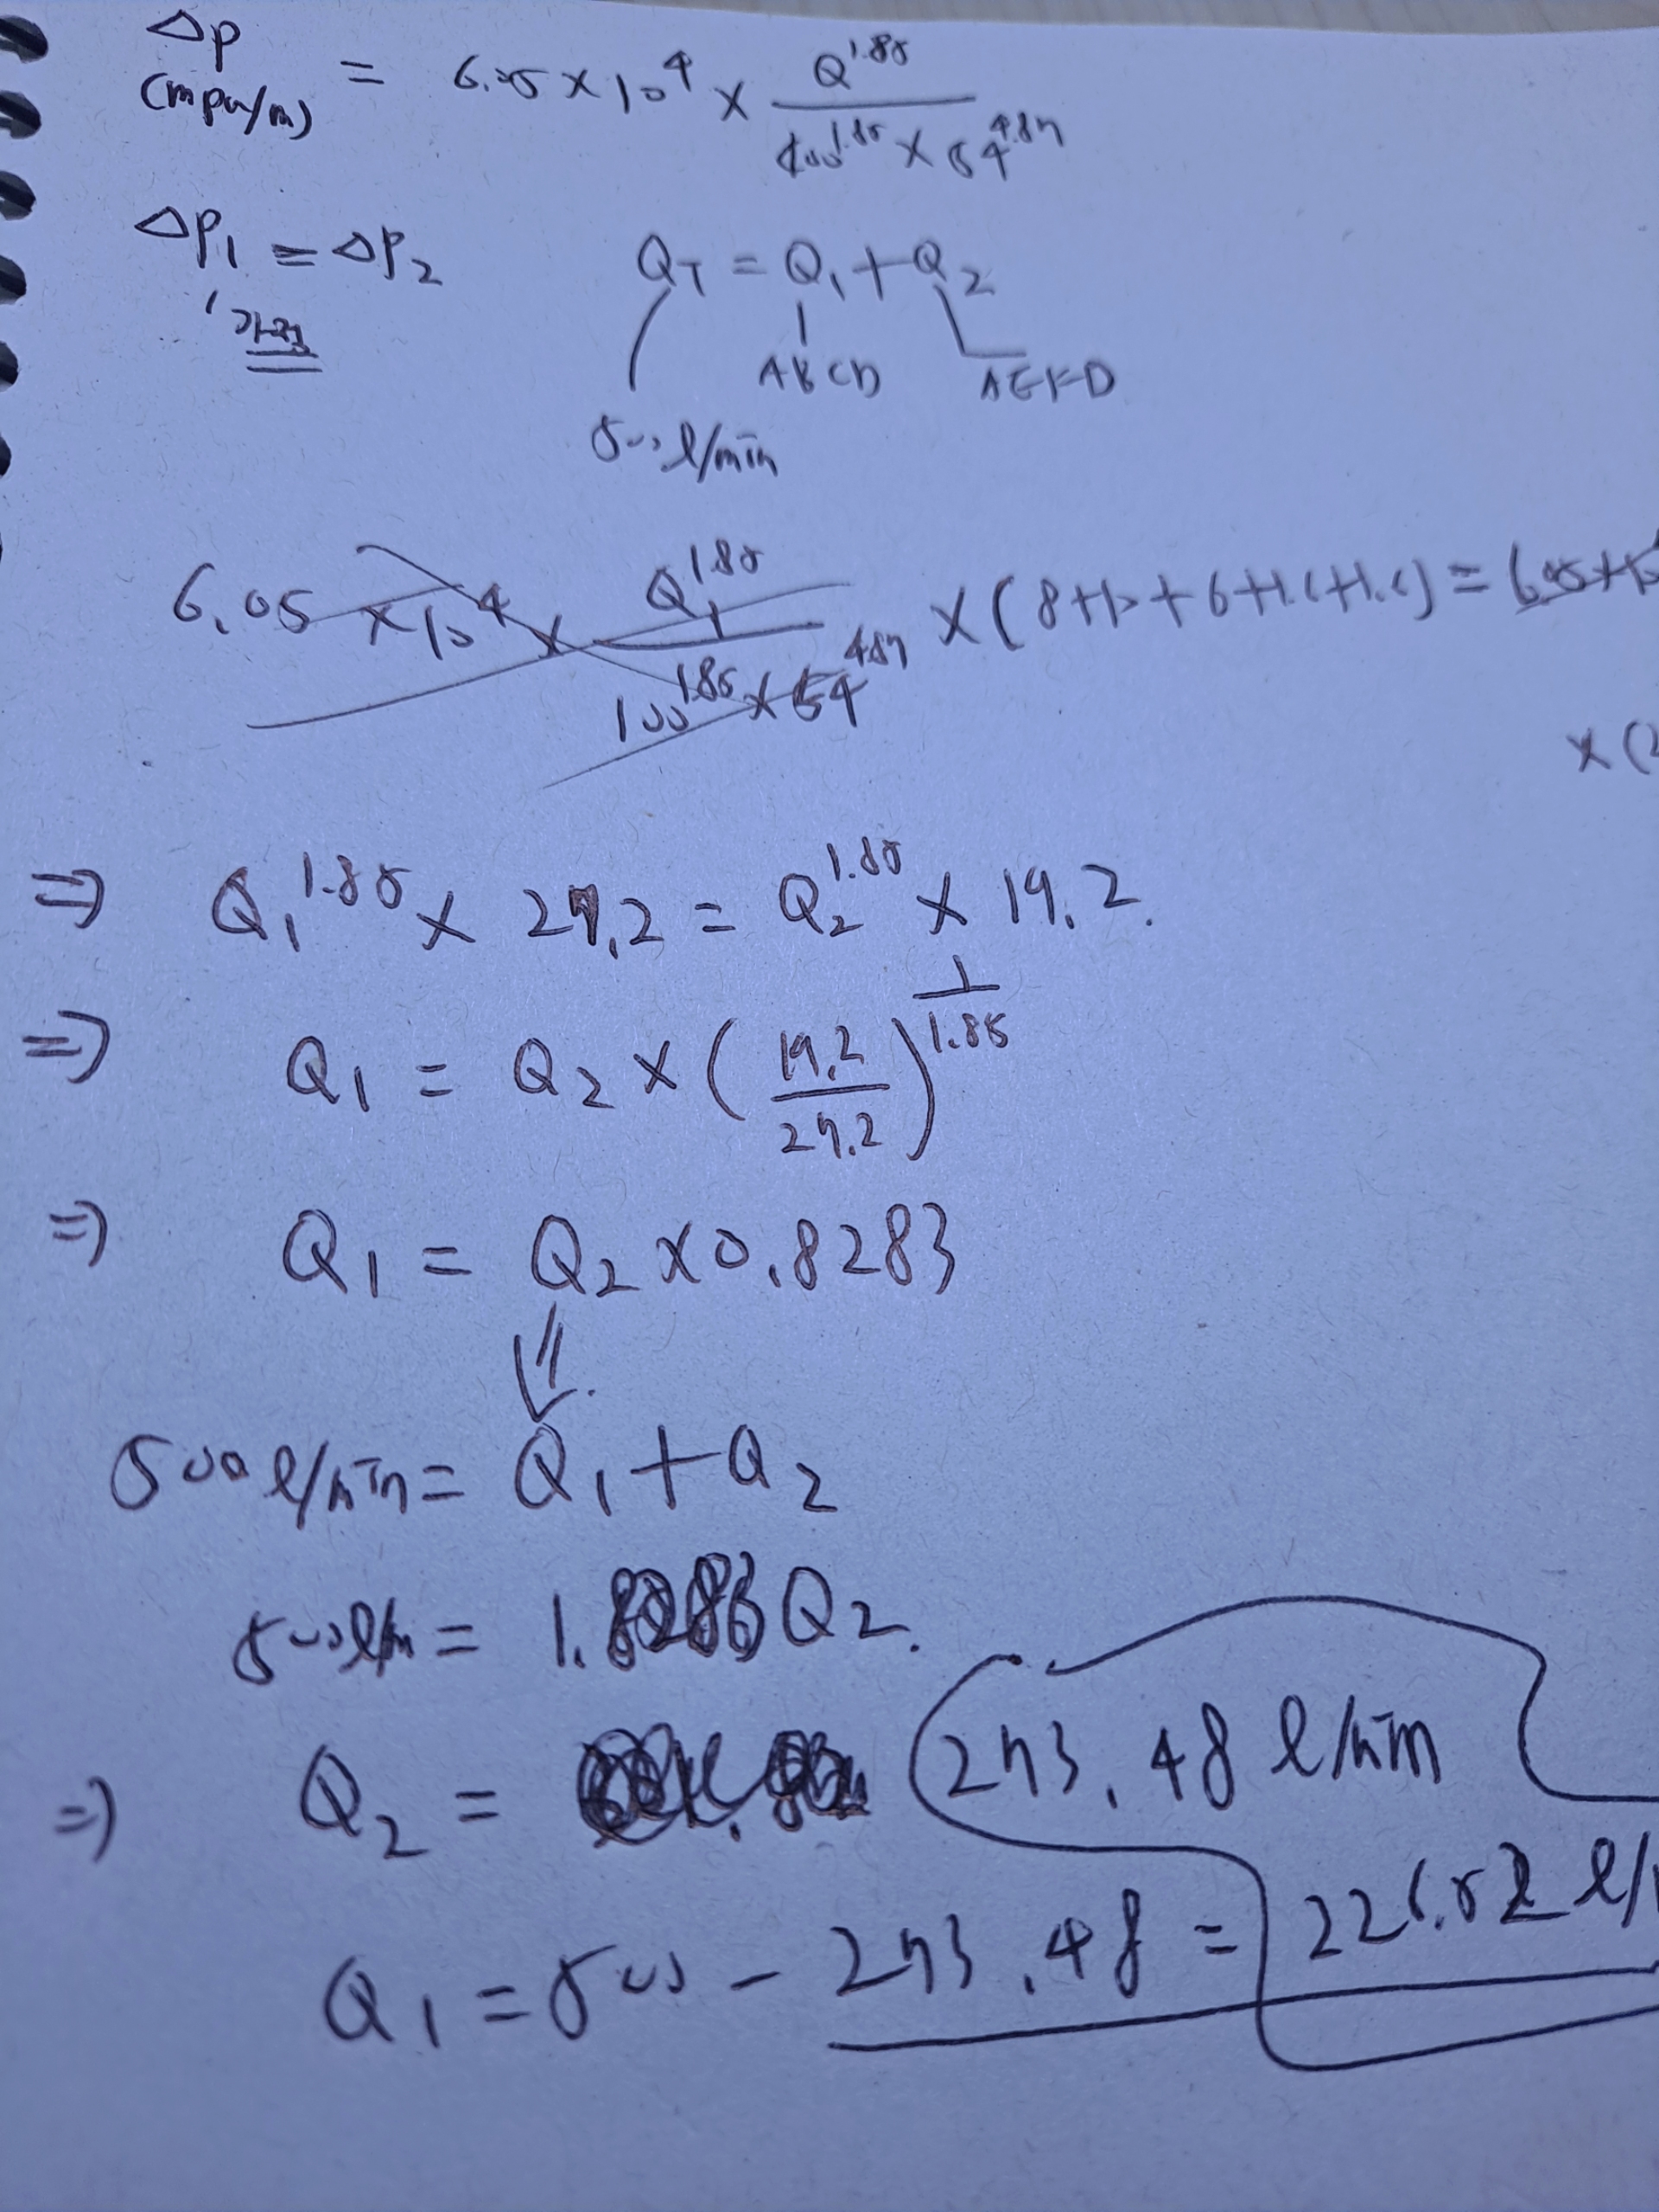 ΔP (mpa/m) = 6.05 × 10^4 × Q^1.85 / (100^1.85 × 54^4.87)
ΔP₁ = ΔP₂
가정
Q_T = Q₁ + Q₂
ABCD AEFD
500 l/min
6.05 × 10^4 × Q₁^1.85 / (100^1.85 × 54^4.87) × (8+10+6+1.6+1.6) = 6.05×10
× (2
⇒ Q₁^1.85 × 27.2 = Q₂^1.85 × 19.2.
⇒ Q₁ = Q₂ × (19.2 / 27.2)^(1/1.85)
⇒ Q₁ = Q₂ × 0.8283
⇓
500 l/min = Q₁ + Q₂
500 l/m = 1.8283 Q₂.
⇒ Q₂ = 273.48 l/min
Q₁ = 500 - 273.48 = 226.52 l/